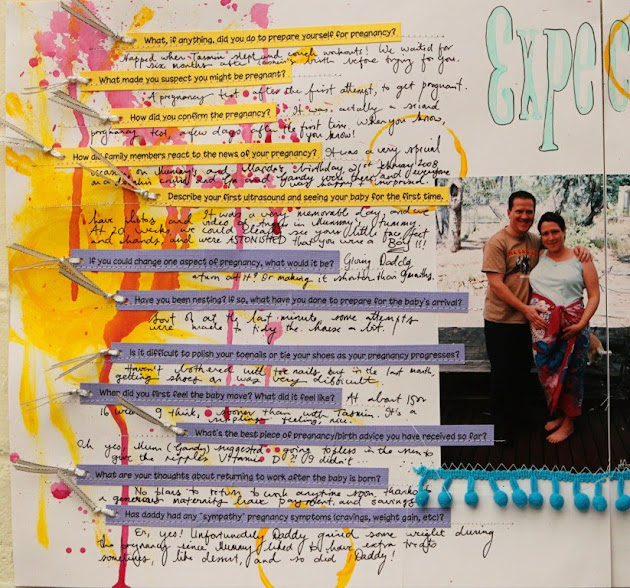 Expec
What, if anything, did you do to prepare yourself for pregnancy?
Napped when Tasmin slept and couch workouts! We waited for
six months after Tasmin's birth before trying for you.
What made you suspect you might be pregnant?
A pregnancy test after the first attempt, to get pregnant.
How did you confirm the pregnancy? It was actually a second
pregnancy test, a few days after the first time. When you know,
you know!
How did family members react to the news of your pregnancy? It was a very special
on Mummy's and birthday, 21st 2008
on a and Gandy were there and everyone
was happy surprised.
Describe your first ultrasound and seeing your baby for the first time.
I have photos and It was a very memorable day, and we
video of in Mummy's tummy.
At 20 weeks we could clearly see your little face, feet
and hands and were ASTONISHED that you were a BOY!!!
If you could change one aspect of pregnancy, what would it be? Giving Daddy
a turn at it! Or making it shorter than 9 months.
Have you been nesting? If so, what have you done to prepare for the baby's arrival?
Sort of at the last minute, some attempts
were made to tidy the house a bit.
Is it difficult to polish your toenails or tie your shoes as your pregnancy progresses?
Haven't bothered with toe nails but in the last month,
getting shoes on was very difficult.
When did you first feel the baby move? What did it feel like? At about 15 or
16 weeks I think, sooner than with Tasmin. It's a
rippling feeling, nice.
What's the best piece of pregnancy/birth advice you have received so far?
Oh yes, Mum (Gandy) suggested going topless in the sun to
give the nipples Vitamin D!! I didn't...
What are your thoughts about returning to work after the baby is born?
No plans to return to work anytime soon, thanks to
a generous maternity leave payment, and savings.
Has daddy had any "sympathy" pregnancy symptoms (cravings, weight gain, etc)?
Er, yes! Unfortunately Daddy gained some weight during
the pregnancy since Mummy liked to have extra treats
sometimes, like dessert, and so did Daddy!